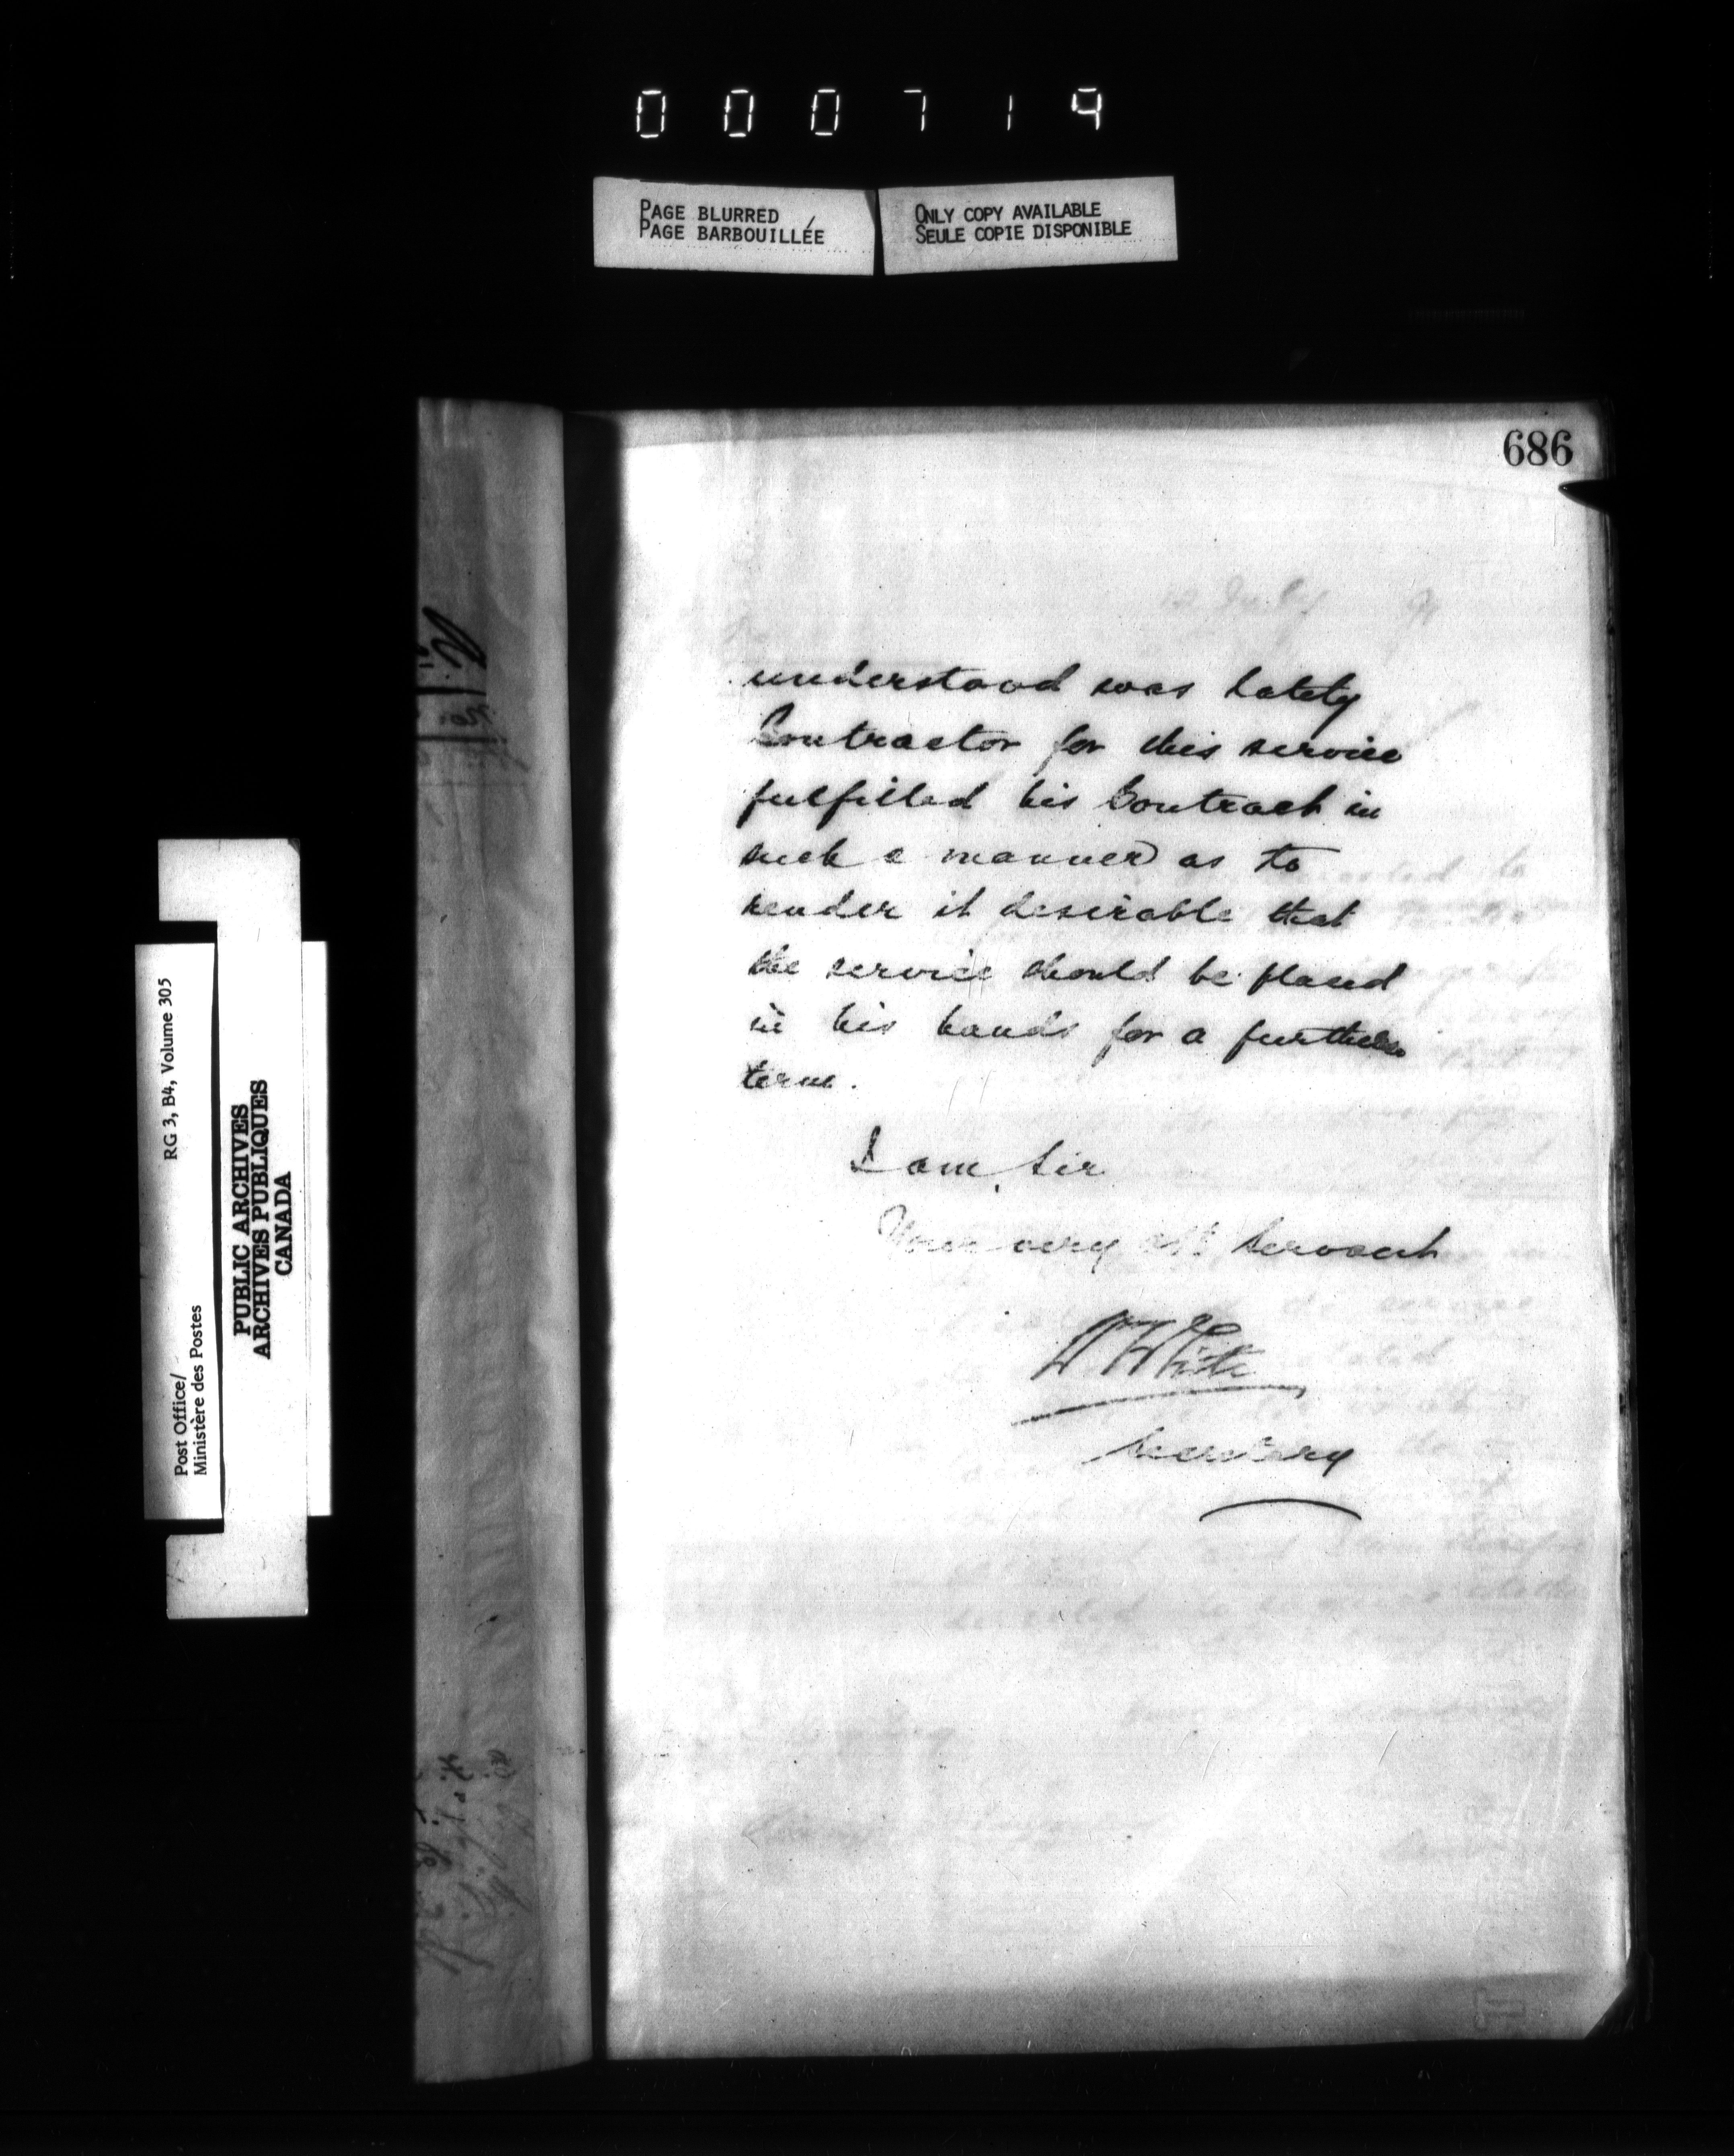 000719
PAGE BLURRED
PAGE BARBOUILLÉE
ONLY COPY AVAILABLE
SEULE COPIE DISPONIBLE
686
understood was lately
Contractor for this service
fulfilled his Contract in
such a manner as to
render it desirable that
the service should be placed
in his hands for a further
term.
I am, Sir
Your very obt Servant
W White
Secretary
RG 3, B4, Volume 305
Post Office/
Ministère des Postes
PUBLIC ARCHIVES
ARCHIVES PUBLIQUES
CANADA